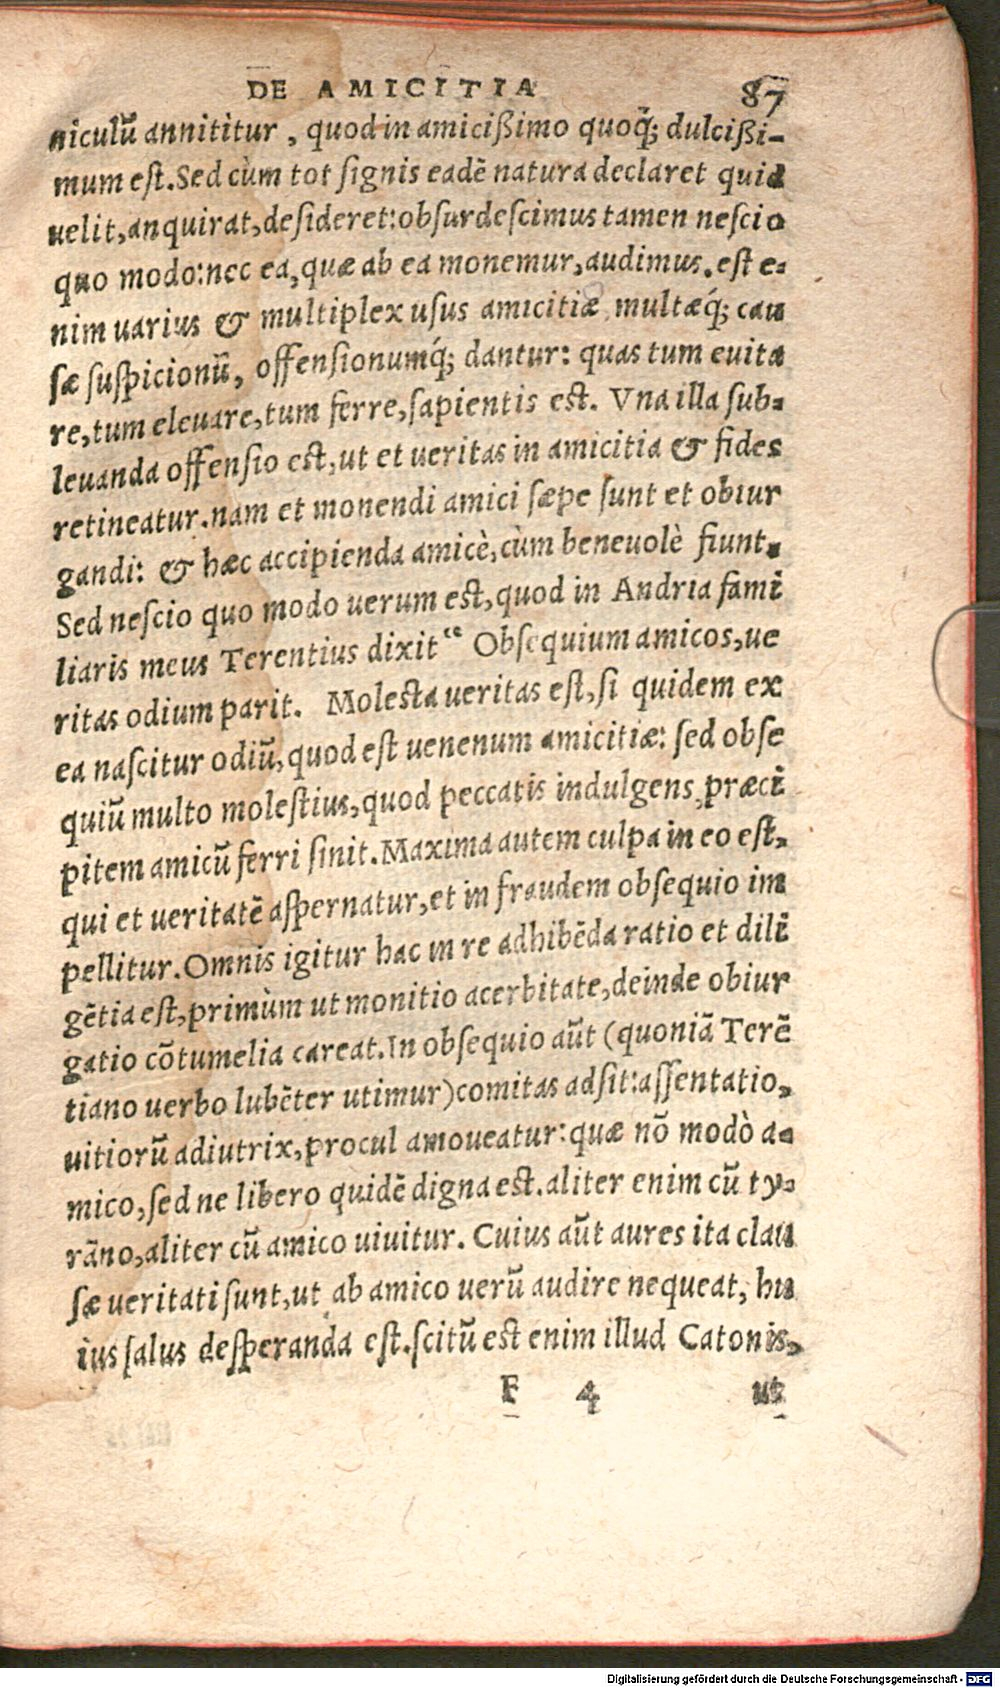 DE AMICITIA 87
niculũ annititur, quod in amicißimo quoq́; dulcißi-
mum est. Sed cùm tot signis eadẽ natura declaret quid
uelit, anquirat, desideret: obsurdescimus tamen nescio
quo modo: nec ea, quæ ab ea monemur, audimus. est e-
nim uarius & multiplex usus amicitiæ, multæq́; cau
sæ suspicionũ, offensionumq́; dantur: quas tum euita
re, tum eleuare, tum ferre, sapientis est. Vna illa sub-
leuanda offensio est, ut et ueritas in amicitia & fides
retineatur. nam et monendi amici sæpe sunt et obiur
gandi: & hæc accipienda amicè, cùm beneuolè fiunt.
Sed nescio quo modo uerum est, quod in Andria fami
liaris meus Terentius dixit “ Obsequium amicos, ue
ritas odium parit. Molesta ueritas est, si quidem ex
ea nascitur odiũ, quod est uenenum amicitiæ: sed obse
quiũ multo molestius, quod peccatis indulgens, præci
pitem amicũ ferri sinit. Maxima autem culpa in eo est,
qui et ueritatẽ aspernatur, et in fraudem obsequio im
pellitur. Omnis igitur hac in re adhibẽda ratio et dili
gẽtia est, primùm ut monitio acerbitate, deinde obiur
gatio cõtumelia careat. In obsequio aũt (quoniã Terẽ
tiano uerbo lubẽter utimur) comitas adsit: assentatio,
uitiorũ adiutrix, procul amoueatur: quæ nõ modò a-
mico, sed ne libero quidẽ digna est. aliter enim cũ ty-
rãno, aliter cũ amico uiuitur. Cuius aũt aures ita clau
sæ ueritati sunt, ut ab amico uerũ audire nequeat, hu
ius salus desperanda est. scitũ est enim illud Catonis,
F 4 ut
Digitalisierung gefördert durch die Deutsche Forschungsgemeinschaft - DFG